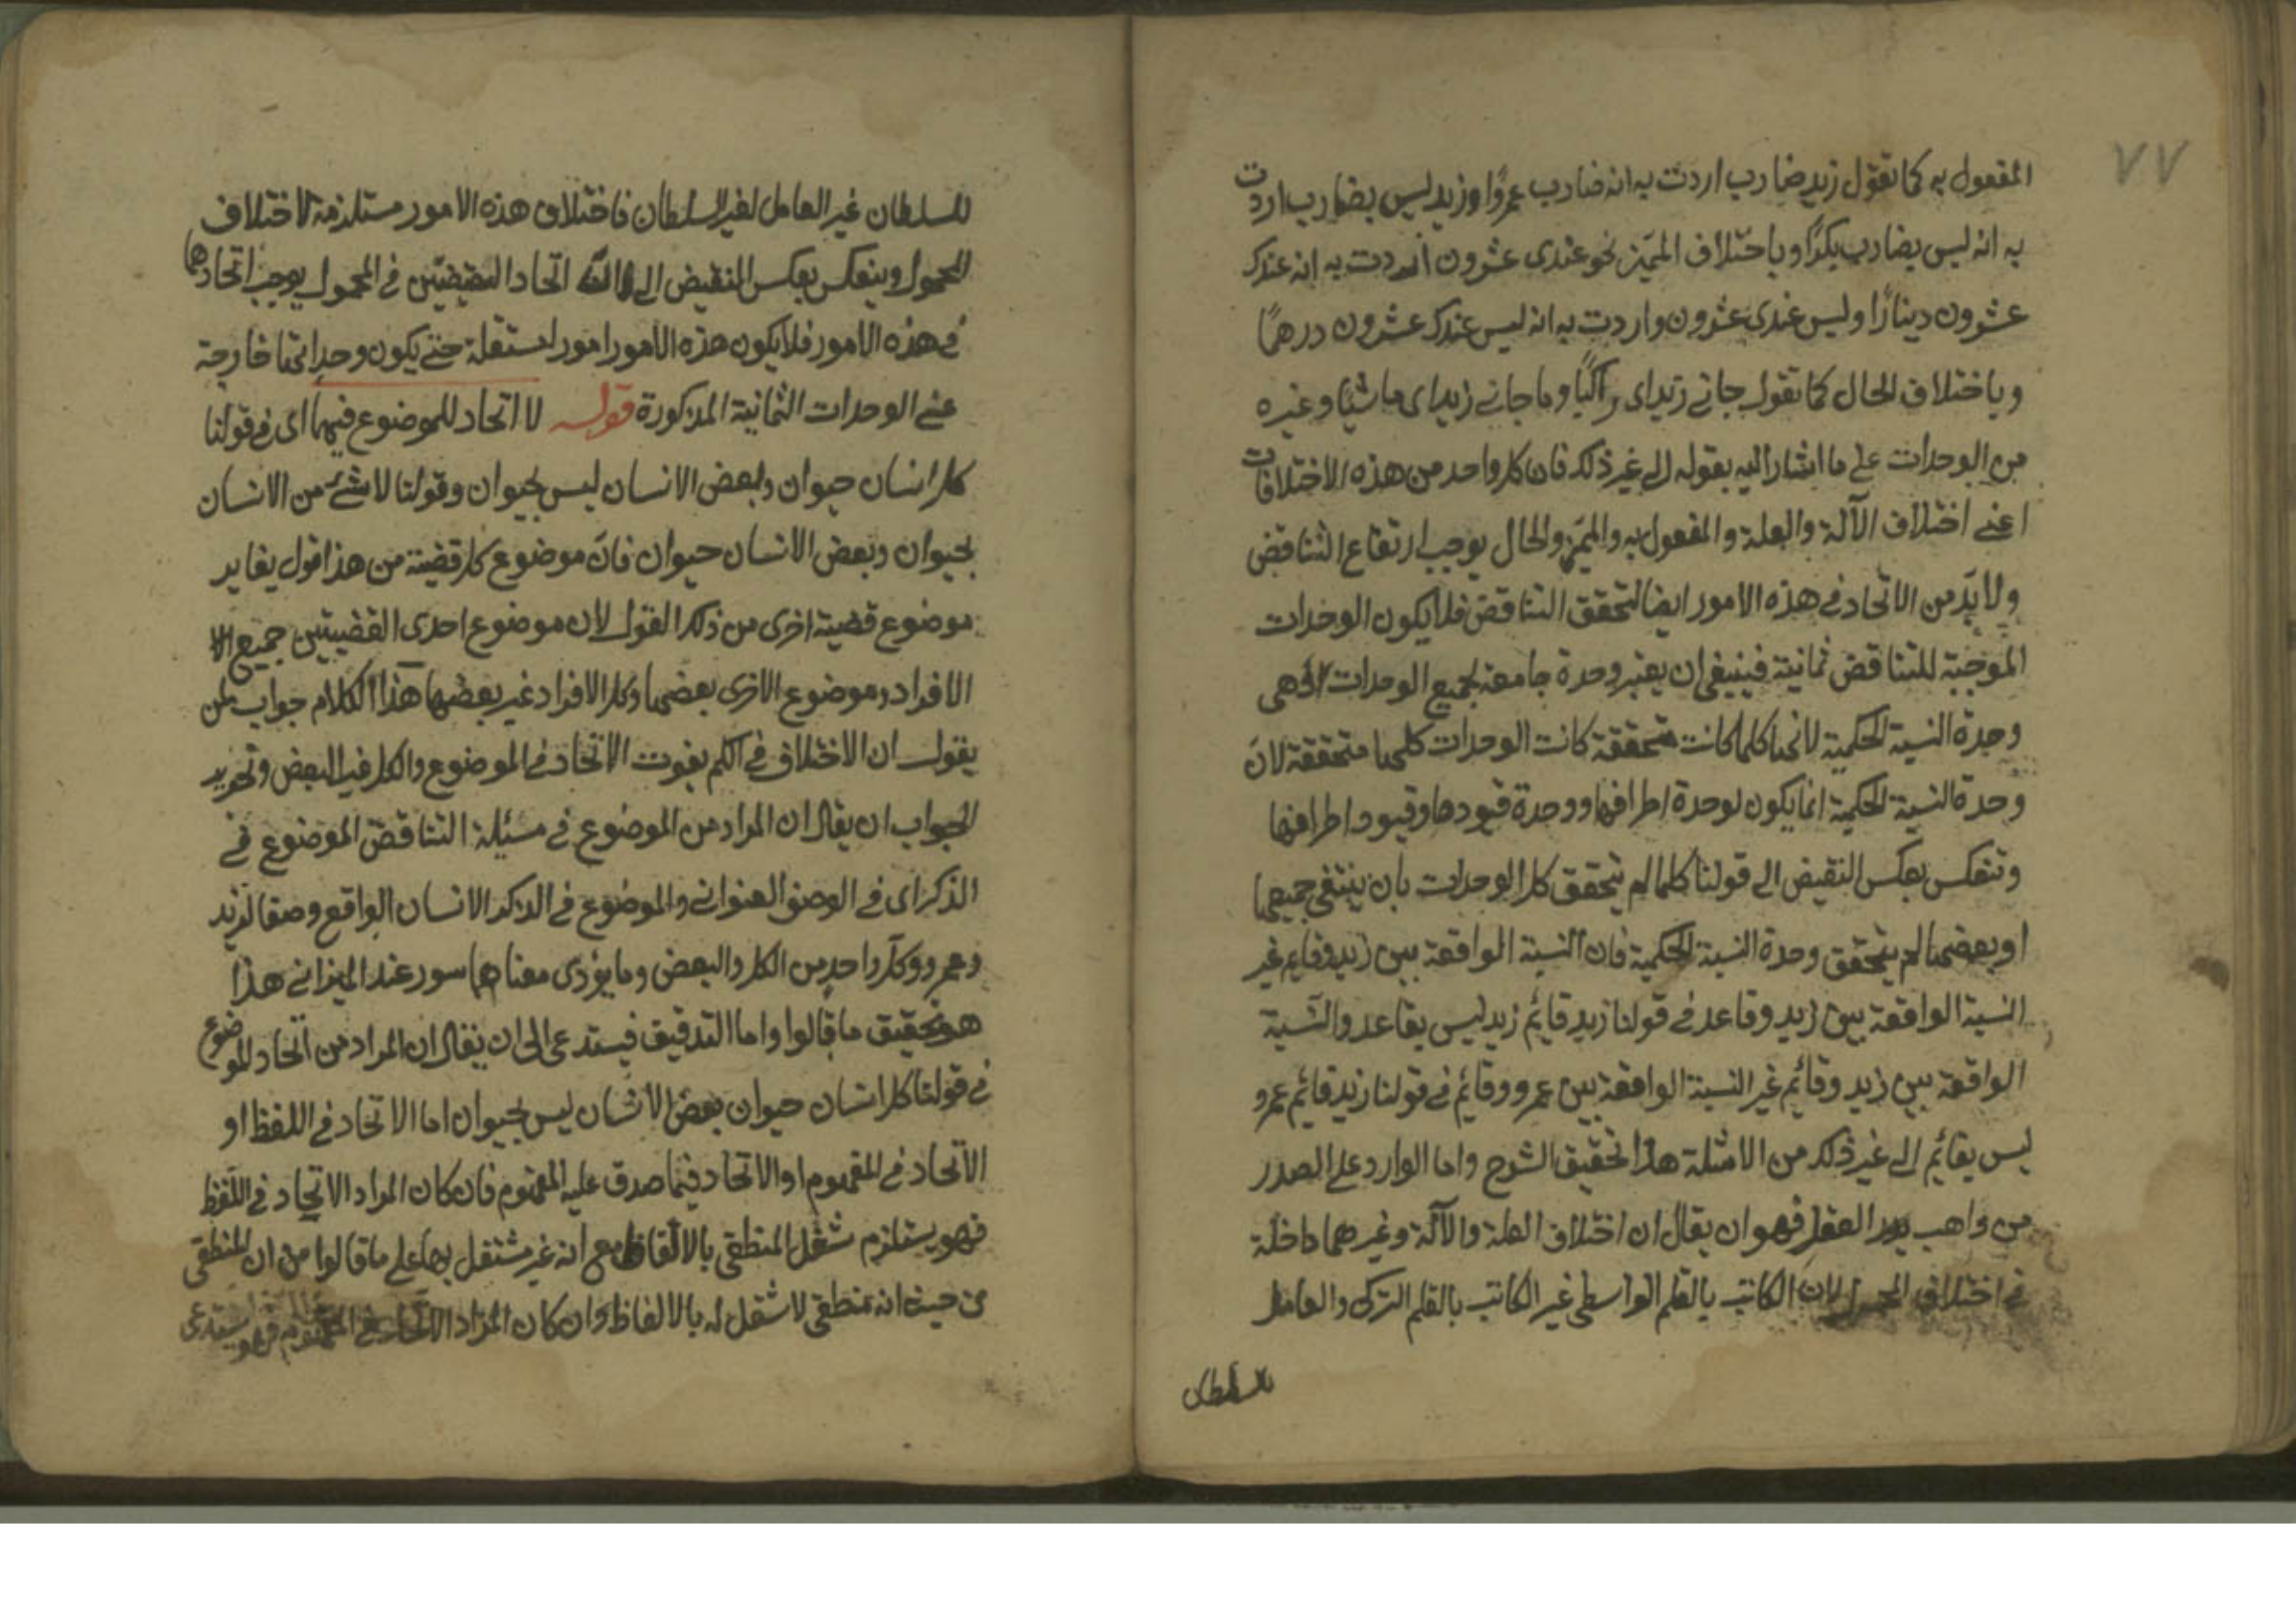 ٧٧
المفعول به كما تقول زيد ضارب اردت به انه ضارب عمرًوا وزيد ليس بضارب اردت
به انه ليس بضارب بكرًا وباختلاف المميّز نحو عندى عشرون اردت به انه عندك
عشرون دينارًا وليس عندى عشرون واردت به انه ليس عندك عشرون درهمًا
وباختلاف الحال كما تقول جانے زيد اى راكبًا وما جانے زيد اى ماشيًا وغيره
من الوحدات على ما اشار اليه بقوله الى غير ذلك فان كل واحد من هذه الاختلافات
اعنى اختلاف الآلة والعلة والمفعول به والمميّز والحال يوجب ارتفاع التناقض
ولا بدّ من الاتحاد فى هذه الامور ايضا لتحقق التناقض فلا يكون الوحدات
الموجبة للتناقض ثمانية فينبغى ان يعتبر وحدة جامعة لجميع الوحدات هى
وحدة النسبة الحكمية لانها كلما كانت متحققة كانت الوحدات كلها متحققة لانّ
وحدة النسبة الحكمية انما يكون لوحدة اطرافها ووحدة قيودها وقيود اطرافها
وتنعكس بعكس النقيض الى قولنا كلما لم يتحقق كل الوحدات بان ينتفى جميعها
او بعضها لم يتحقق وحدة النسبة الحكمية فان النسبة الواقعة بين زيد وقايم غير
النسبة الواقعة بين زيد وقاعد فى قولنا زيد قايم زيد ليس بقاعد والنسبة
الواقعة بين زيد وقائم غير النسبة الواقعة بين عمرو وقايم فى قولنا زيد قايم عمرو
ليس بقائم الى غير ذلك من الامثلة هذا تحقيق الشرح واما الوارد على الصدر
من واهب العقل فهو ان يقال ان اختلاف العلة والآلة وغيرهما داخلة
فى اختلاف المحمول لان الكاتب بالقلم الواسطى غير الكاتب بالقلم التركى والعامل
للسلطان
للسلطان غير العامل لغير السلطان فاختلاف هذه الامور مستلزمة لاختلاف
المحمول وينعكس بعكس النقيض الى اتحاد النقيضين فى المحمول يوجب اتحادهما
فى هذه الامور فلا يكون هذه الامور امور مستقلة حتى يكون وحداتها خارجة
عن الوحدات الثمانية المذكورة قوله لا اتحاد للموضوع فيهما اى فى قولنا
كل انسان حيوان وبعض الانسان ليس بحيوان وقولنا لا شئ من الانسان
بحيوان وبعض الانسان حيوان فانّ موضوع كل قضية من هذا قول يغاير
موضوع قضية اخرى من ذلك القول لان موضوع احدى القضيتين جميع
الافراد وموضوع الاخرى بعضها وكل الافراد غير بعضها هذا الكلام جواب لمن
يقول ان الاختلاف فى الكم يفوت الاتحاد فى الموضوع والكل غير البعض وتحرير
الجواب ان يقال ان المراد من الموضوع فى مسئلة التناقض الموضوع فى
الذكر اى فى الوصف العنوانى والموضوع فى الذكر الانسان الواقع وصفا لزيد
وعمرو وكل واحد من الكل والبعض وما يؤدى معناهما سور عند الميزانى هذا
هو تحقيق ما قالوا واما التدقيق فيستدعى الى ان يقال ان المراد من اتحاد الموضوع
فى قولنا كل انسان حيوان بعض الانسان ليس بحيوان اما الاتحاد فى اللفظ او
الاتحاد فى المفهوم او الاتحاد فيما صدق عليه المفهوم فان كان المراد الاتحاد فى اللفظ
فهو يستلزم شغل المنطقى بالالفاظ مع انه غير مشتغل بها على ما قالوا من ان المنطقى
من حيث انه منطقى لا شغل له بالالفاظ وان كان المراد الاتحاد فى المفهوم فهو يستدعى